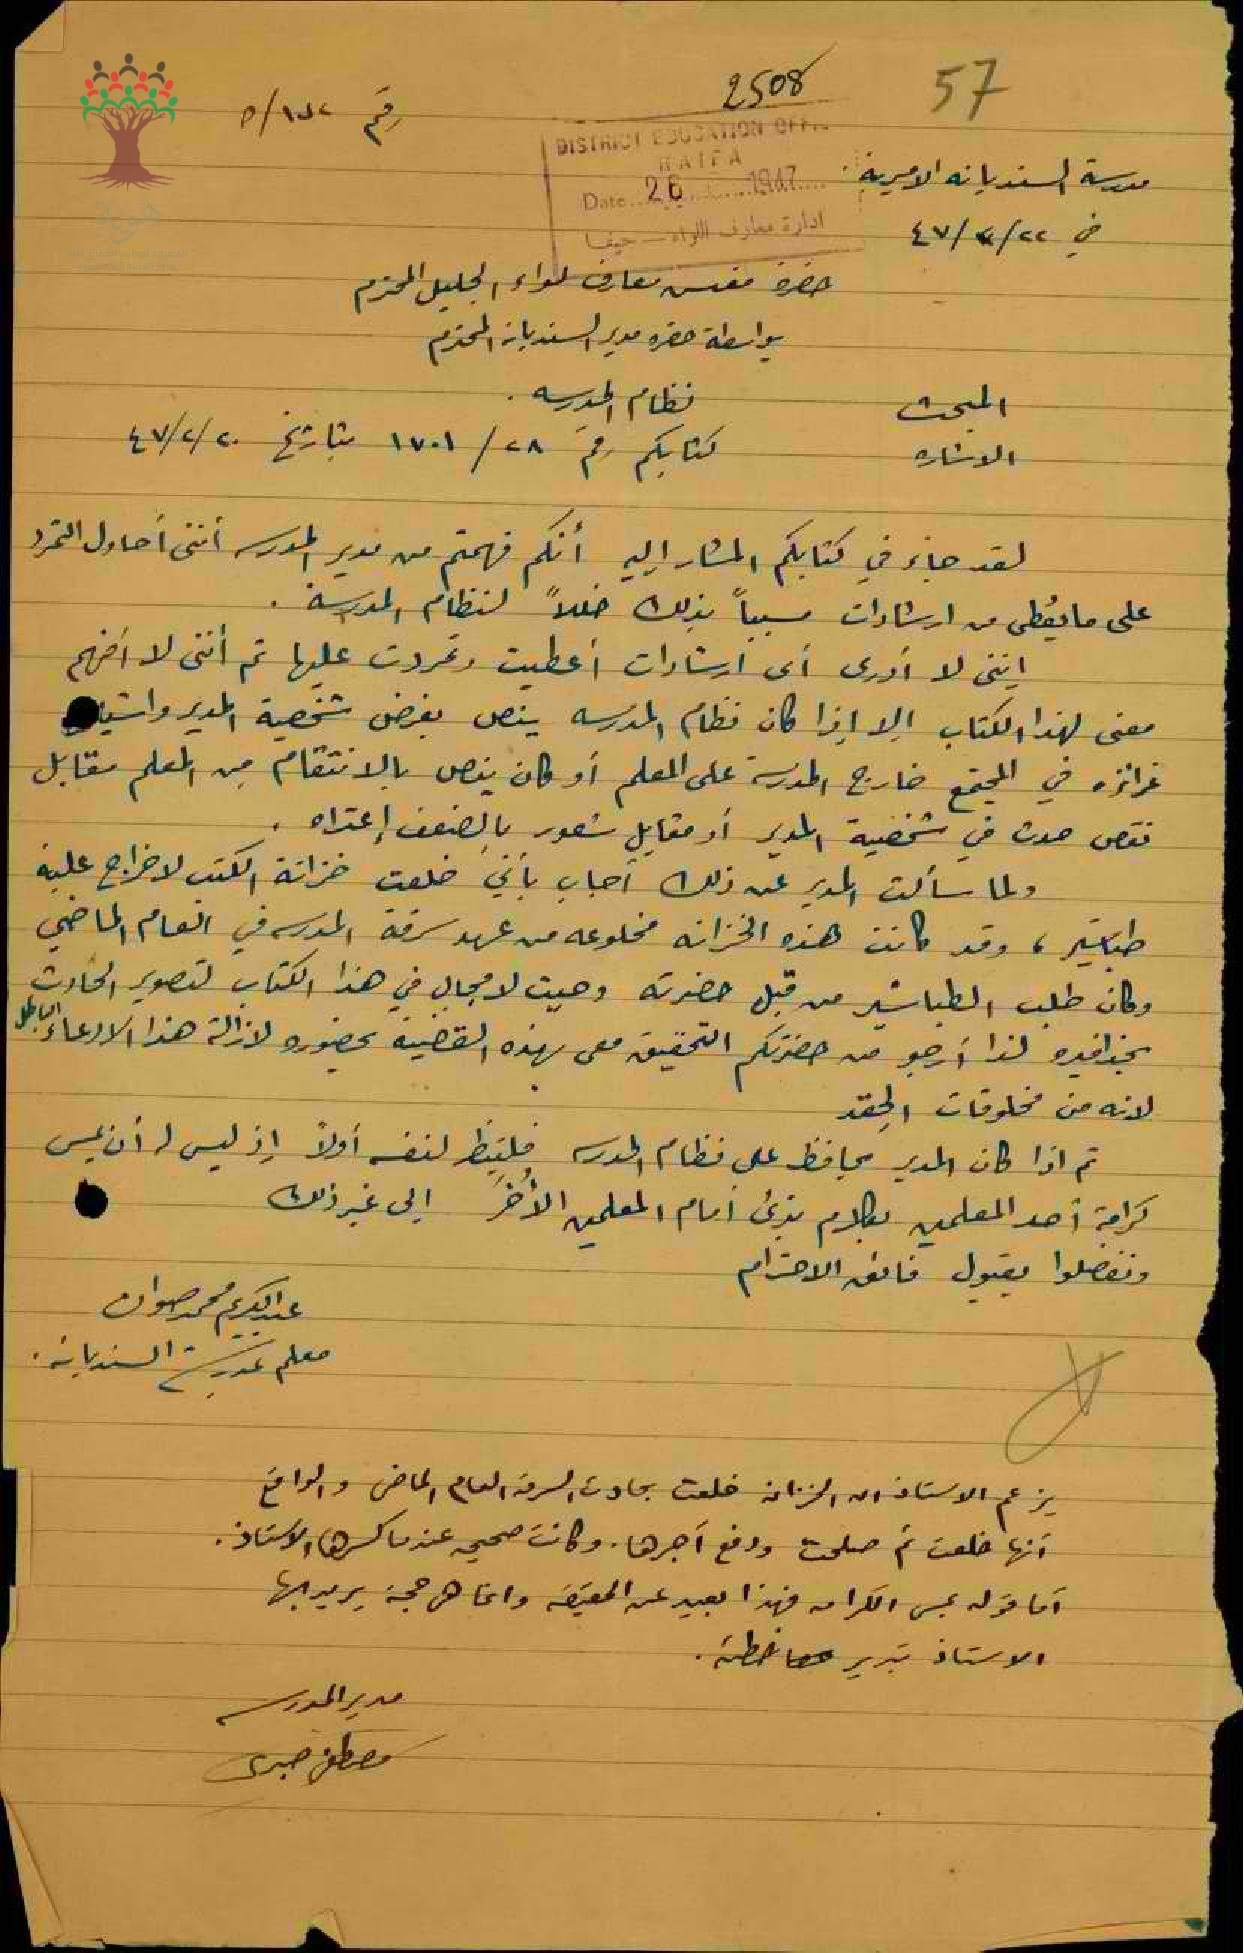 57
2508
رقم ٥/١٥٢
DISTRICT EDUCATION OFFI
HAIFA
Date 26 1947
ادارة معارف اللواء – حيفا
مدرسة السنديانه الاميرية .
في ٤٧/٢/٢٢
حضرة مفتش معارف لواء الجليل المحترم
بواسطة حضره مدير السنديانه المحترم
المبحث نظام المدرسه .
الاشاره كتابكم رقم ٢٨/ ١٧٠١ بتاريخ ٤٧/٢/٢٠
لقد جاء في كتابكم المشار اليه أنكم فهمتم من مدير المدرسه أننى أحاول التمرد
على ما يُعْطى من ارشادات مسبباً بذلك خللاً لنظام المدرسة .
إننى لا أدرى أى ارشادات أعطيت وتمردت عليها ثم أننى لا أفهم
معنى لهذا الكتاب إلا إذا كان نظام المدرسه ينص بفرض شخصية المدير
غرائزه في المجتمع خارج المدرسة على المعلم أو كان ينص بالانتقام من المعلم مقابل
نقص حدث في شخصية المدير أو مقابل شعور بالضعف إعتراه .
ولما سألت المدير عن ذلك أجاب بأني خلعت خزانة الكتب لاخراج علبة
طباشير ، وقد كانت هذه الخزانه مخلوعه من عهد سرقة المدرسه في العام الماضي
وكان طلب الطباشير من قبل حضرته وحيث لا مجال في هذا الكتاب لتصوير الحادث
بحذافيره لذا أرجو من حضرتكم التحقيق معى بهذه القضية بحضوره لازالة هذا الادعاء الباطل
لانه من مخلوقات الحقد
ثم اذا كان المدير يحافظ على نظام المدرسه فلينظر لنفسه أولاً إذ ليس له أن يمس
كرامة أحد المعلمين بكلام بذئ أمام المعلمين الأُخَر الى غير ذلك
وتفضلوا بقبول فائق الاحترام
عبد الكريم محمد صوان
معلم بمدرسة السنديانه .
يزعم الاستاذ ان الخزانه خلعت بحادث السرقه العام الماضى والواقع
أنها خلعت ثم صلحت ودفع أجرها . وكانت صحيحه عندما كسرها الاستاذ .
أما قوله بمس الكرامه فهذا بعيد عن الحقيقه وانما هى حجة يريد بها
الاستاذ تبرير خطئه .
مدير المدرسه
مصطفى صبرى